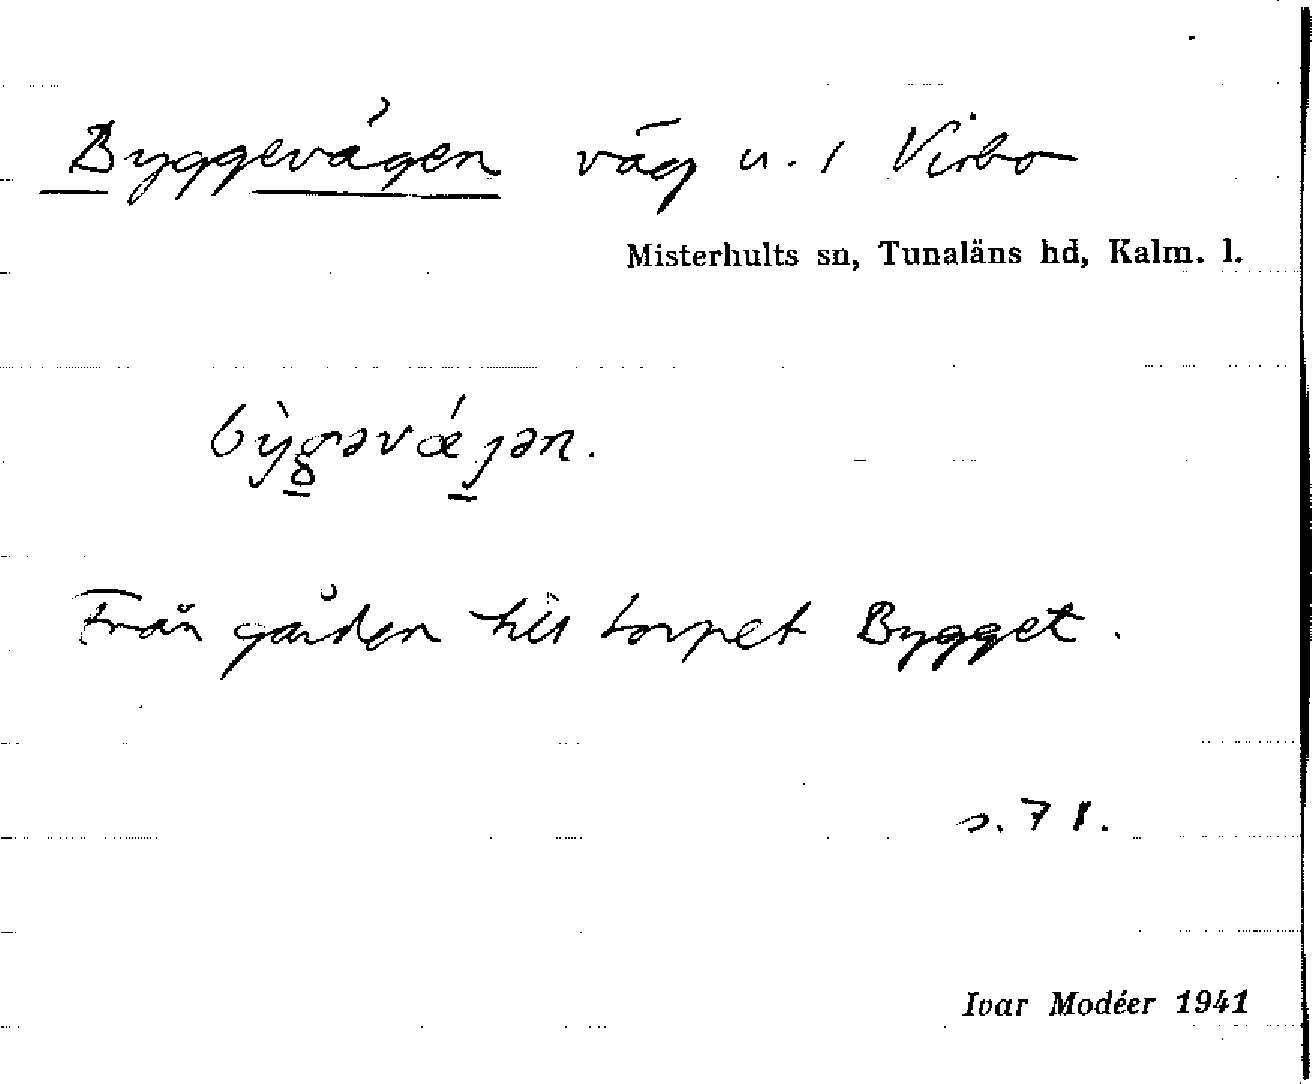 Byggevägen väg u. 1 Virbo
Misterhults sn, Tunaläns hd, Kalm. l.
bỳgəvǽjən.
Från gården till torpet Bygget.
s. 71.
Ivar Modéer 1941